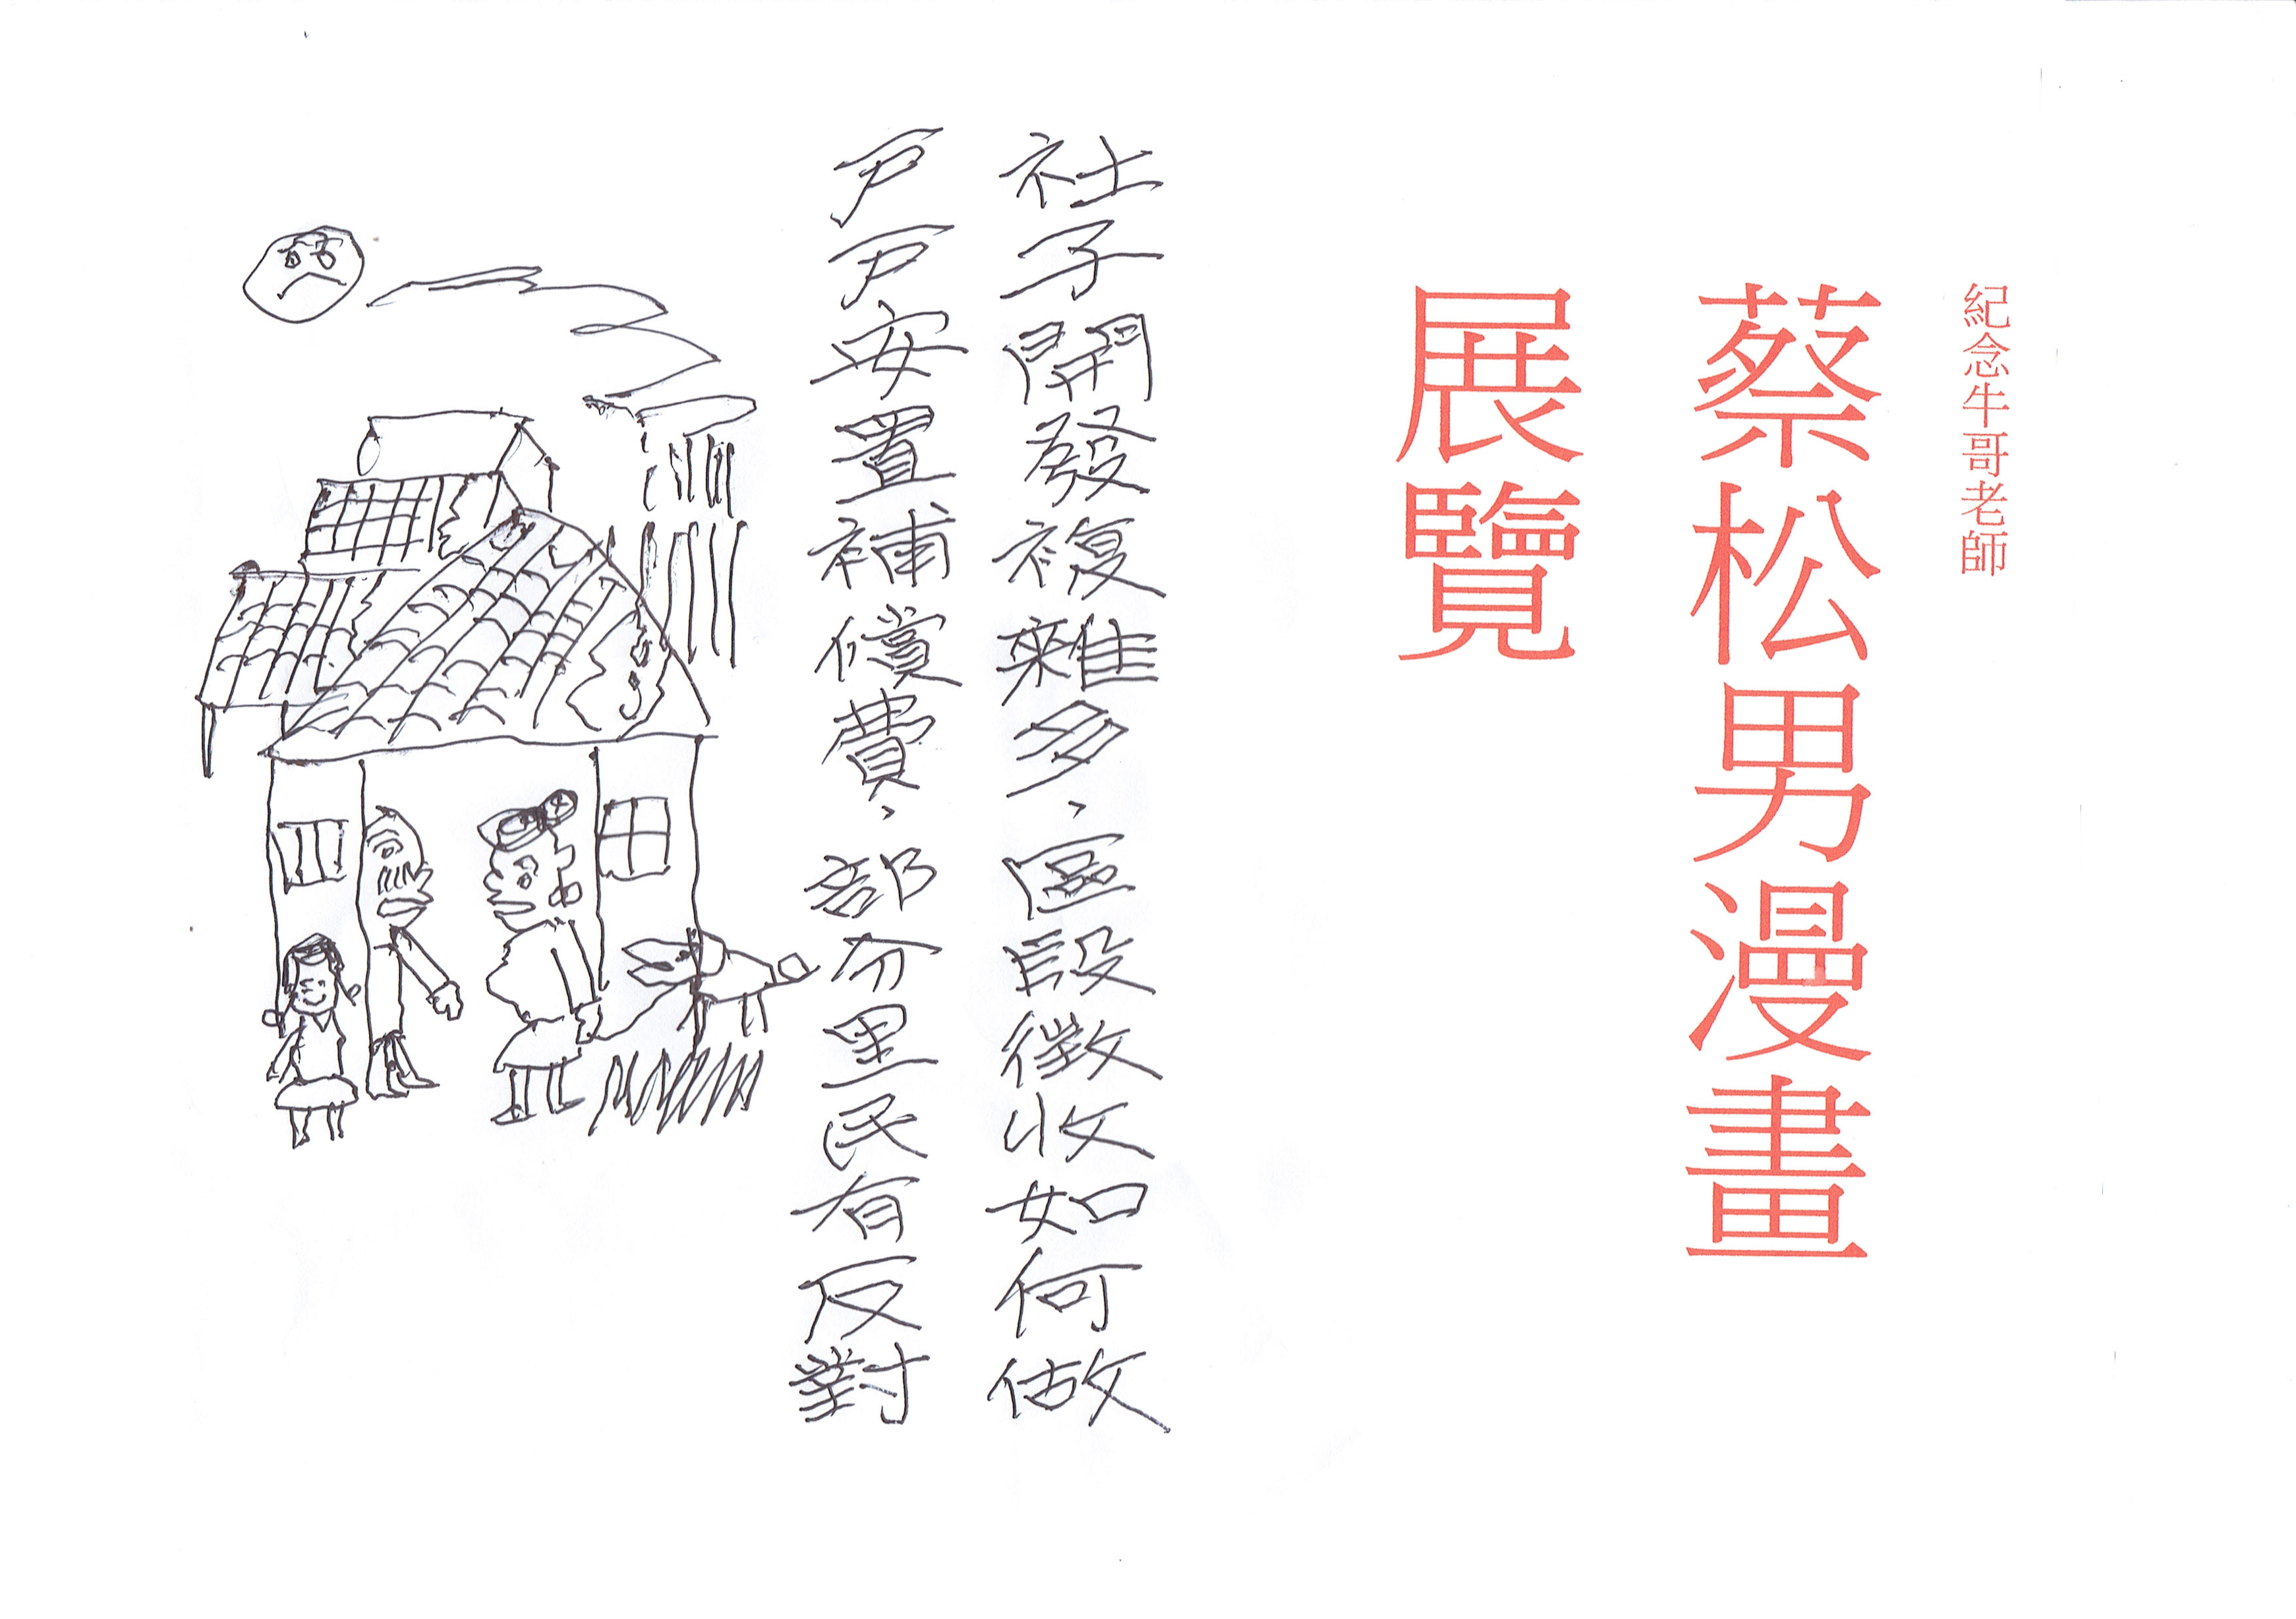 紀念牛哥老師
蔡松男漫畫
展覽
社子開發複雜多、區段徵收如何做
戶戶安置補償費、部分里民有反對